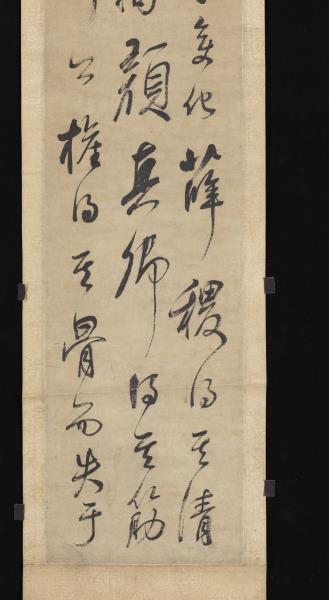 變化薛稷得其清
顏真卿得其筋
公權得其骨而失于